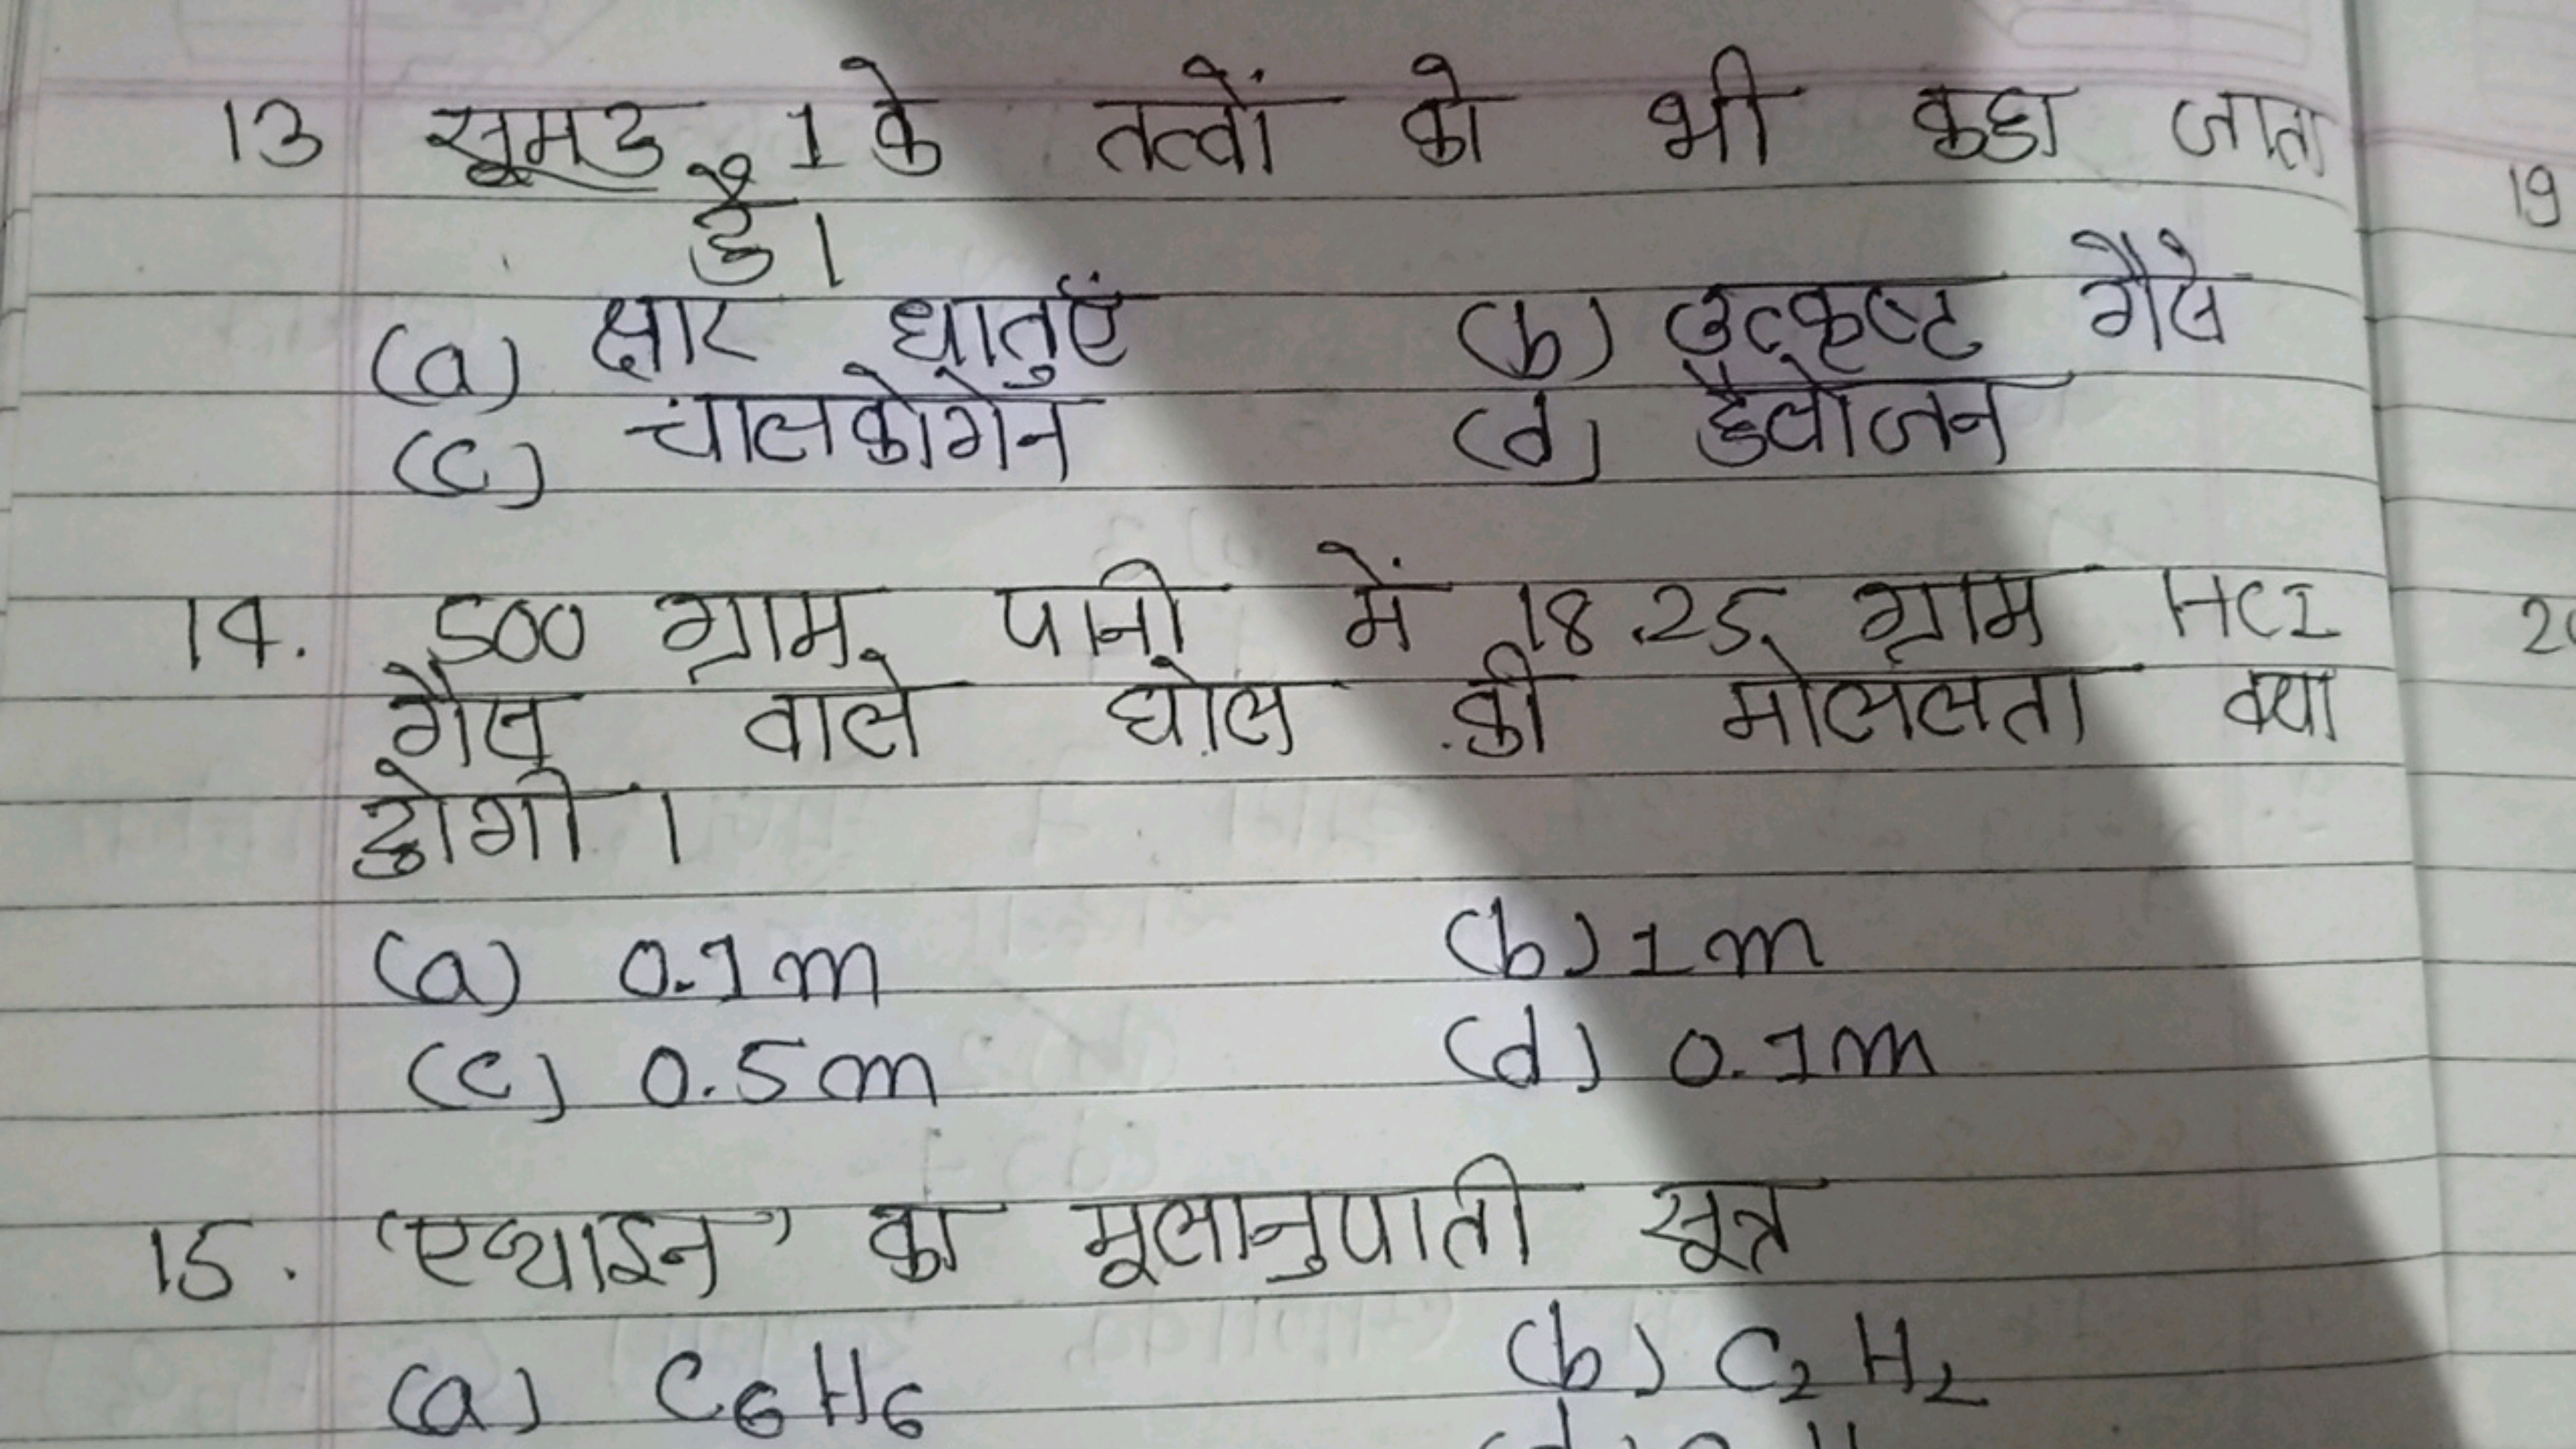 13 सूमह 1 के तत्वों को भी कहा जाता
है।
(a) क्षार धातुएँ (b) उत्कृष्ट गैसे
(c) चालकोगेन (d) हैलोजन
14. 500 ग्राम पानी में 18.25 ग्राम HCI
गैस वाले घोल की मोललता क्या
होगी।
(a) 0.1m (b) 1m
(c) 0.5m (d) 0.1m
15. 'एथाइन' का मूलानुपाती सूत्र
(a) C₆H₆ (b) C₂H₂
19